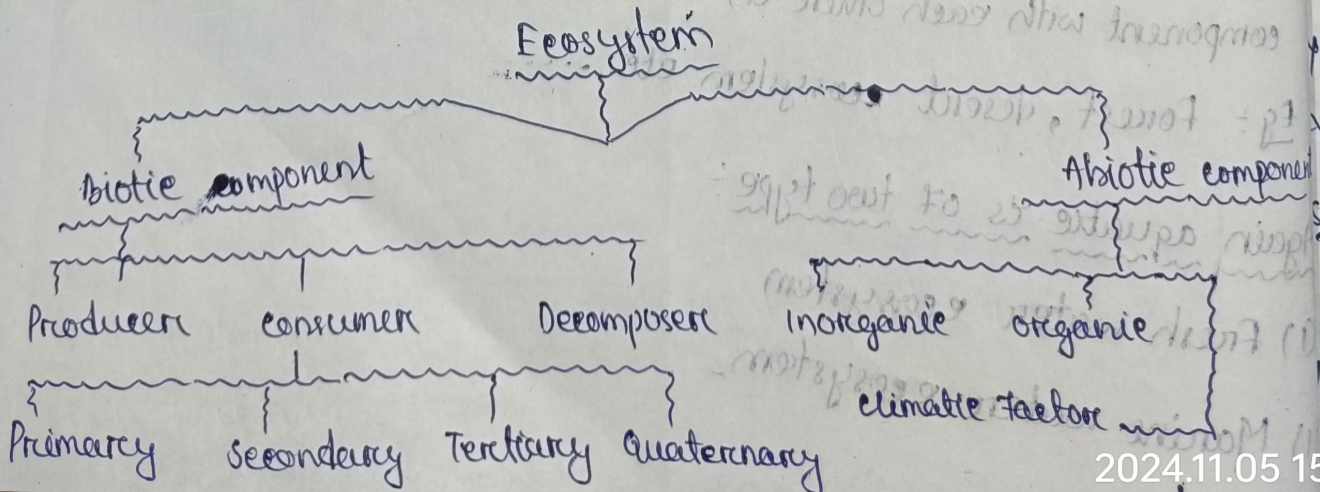 Ecosystem
Biotic component
Abiotic component
Producer consumer Decomposer Inorganic organic
climatic factor
Primary secondary Tertiary Quaternary
2024.11.05 15